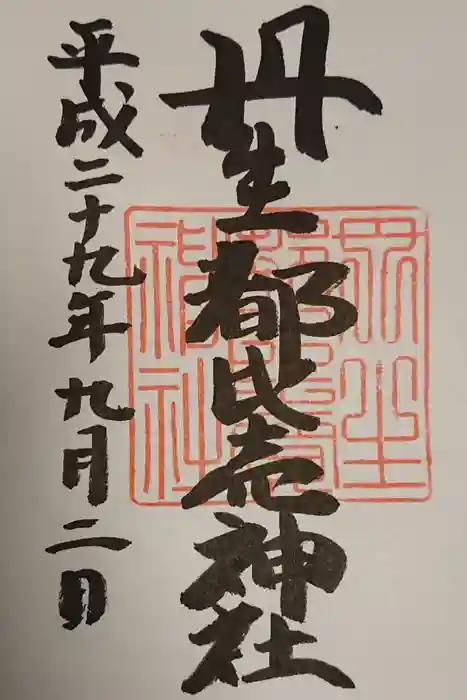 丹生都比売神社
平成二十九年九月二日
丹生
都比賣
神社